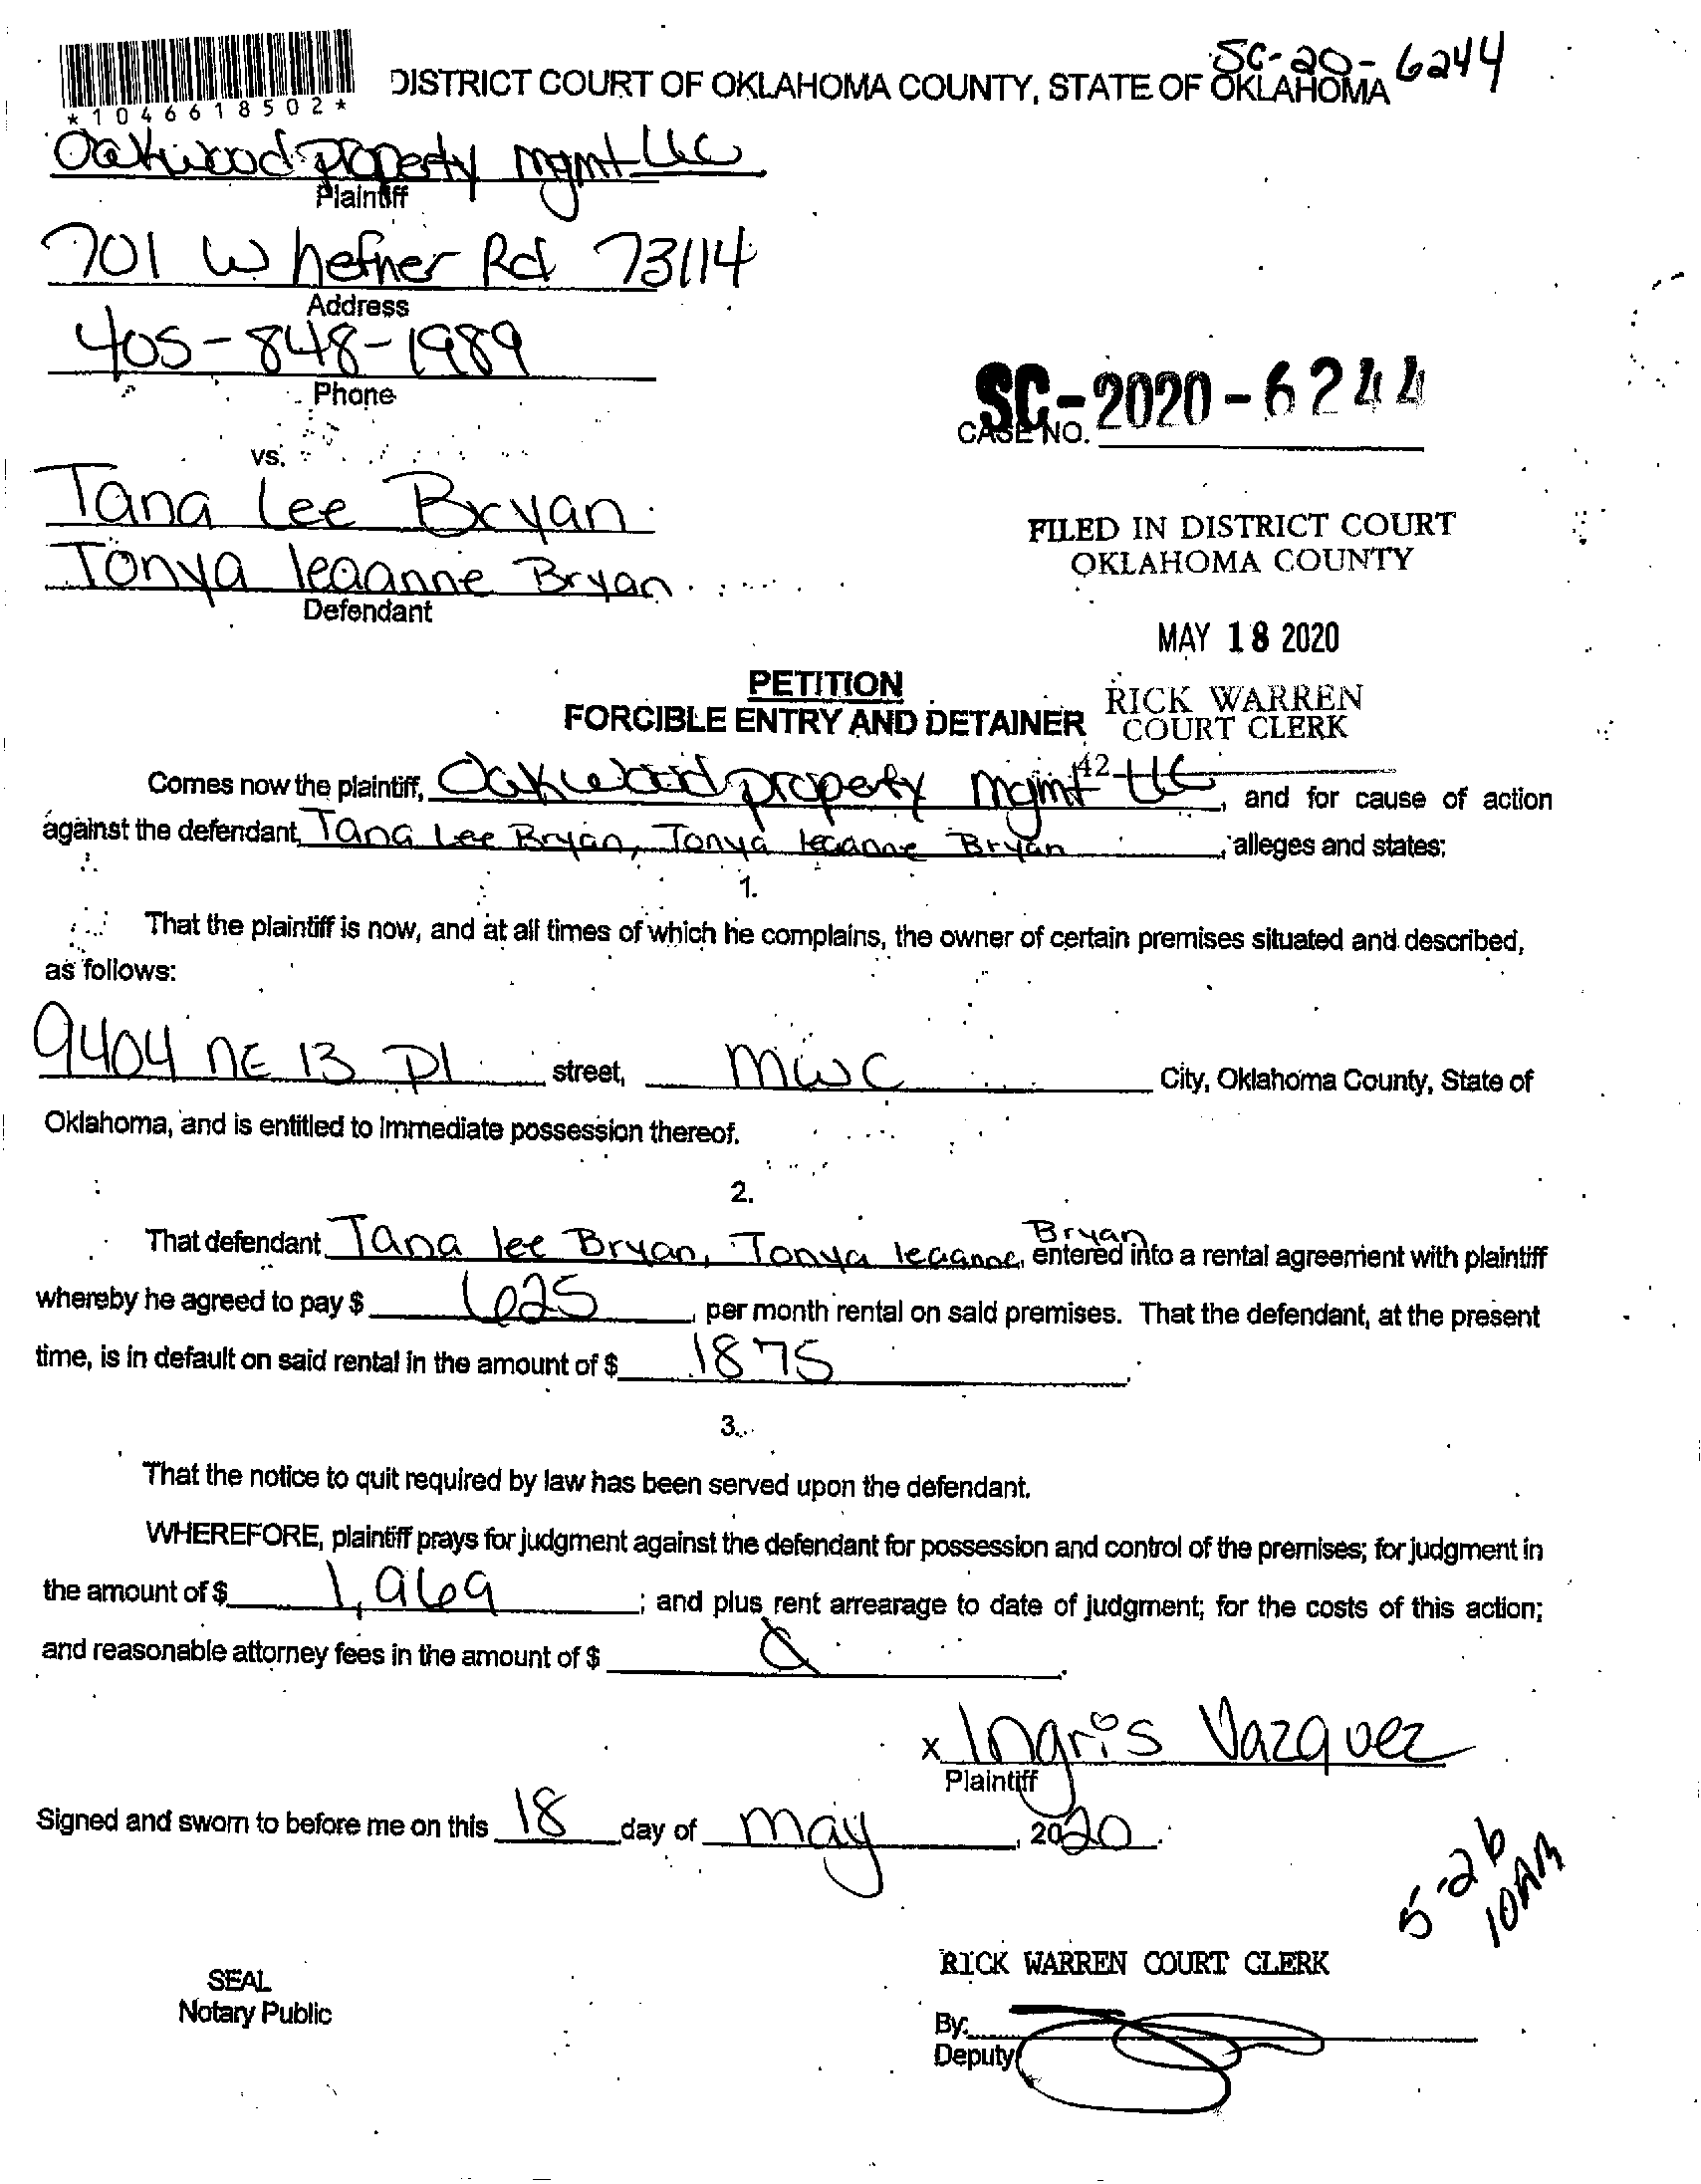 SC-20-6244
DISTRICT COURT OF OKLAHOMA COUNTY, STATE OF OKLAHOMA
*1046618502*
Oakwood property mgmt LLC
Plaintiff
701 W hefner Rd 73114
Address
405-848-1989
Phone
SC-2020-6244
CASE NO.
vs.
Tana Lee Bryan
Tonya leaanne Bryan
Defendant
FILED IN DISTRICT COURT
OKLAHOMA COUNTY
MAY 18 2020
PETITION
FORCIBLE ENTRY AND DETAINER
RICK WARREN
COURT CLERK
42
Comes now the plaintiff, Oakwood property Mgmt LLC, and for cause of action
against the defendant, Tana Lee Bryan, Tonya leaanne Bryan, alleges and states:
1.
That the plaintiff is now, and at all times of which he complains, the owner of certain premises situated and described,
as follows:
9404 NE 13 Pl street, MWC City, Oklahoma County, State of
Oklahoma, and is entitled to immediate possession thereof.
2.
That defendant Tana lee Bryan, Tonya leaanne Bryan, entered into a rental agreement with plaintiff
whereby he agreed to pay $ 625, per month rental on said premises. That the defendant, at the present
time, is in default on said rental in the amount of $ 1875.
3.
That the notice to quit required by law has been served upon the defendant.
WHEREFORE, plaintiff prays for judgment against the defendant for possession and control of the premises; for judgment in
the amount of $ 1,969; and plus rent arrearage to date of judgment; for the costs of this action;
and reasonable attorney fees in the amount of $
x Ingris Vazquez
Plaintiff
Signed and sworn to before me on this 18 day of May, 2020.
5-26
10AM
RICK WARREN COURT CLERK
SEAL
Notary Public
By:
Deputy